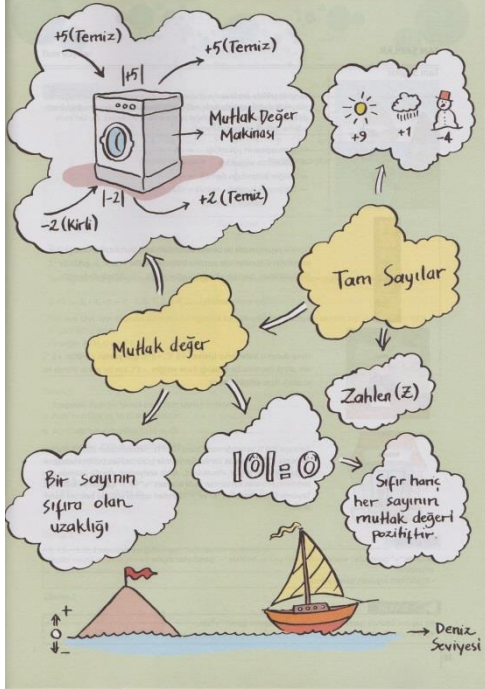 +5(Temiz)
+5(Temiz)
|+5|
Mutlak Değer
Makinası
|-2|
-2(Kirli)
+2(Temiz)
+9
+1
-4
Tam Sayılar
Mutlak değer
Zahlen(Z)
|0|=0
Bir sayının
sıfıra olan
uzaklığı
Sıfır hariç
her sayının
mutlak değeri
pozitiftir.
+
-
Deniz
Seviyesi